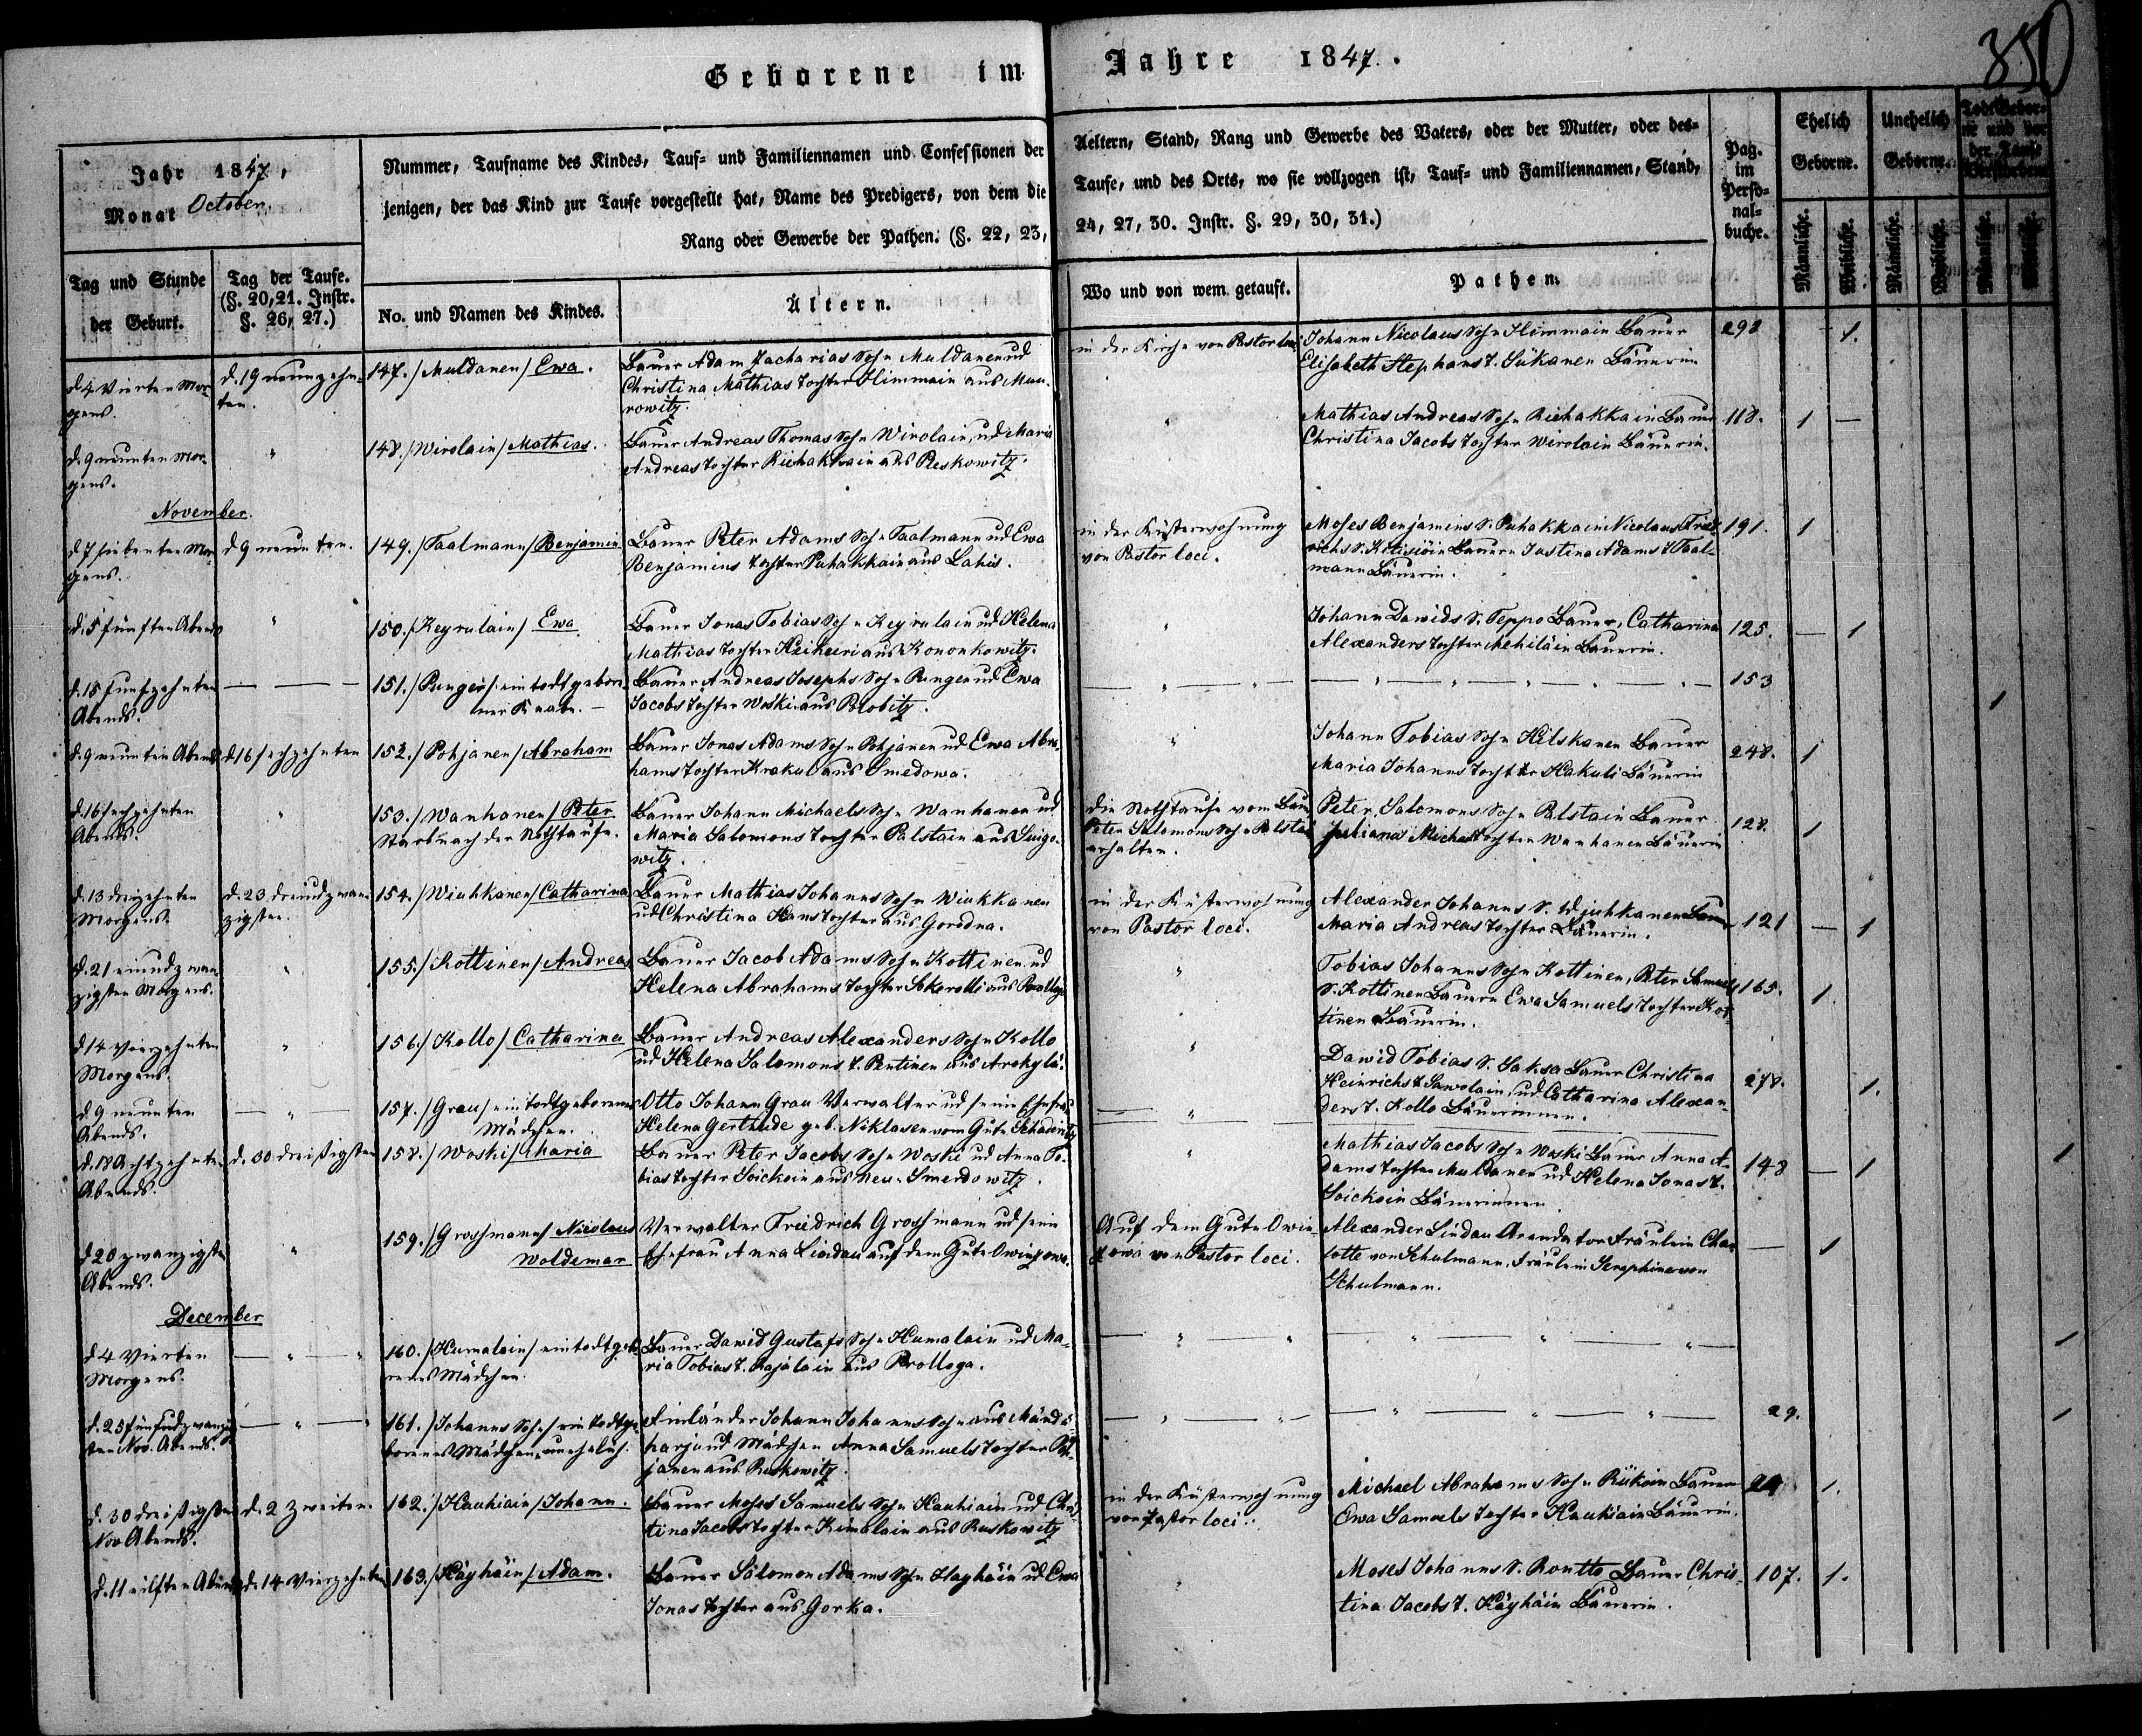 Geborene im Jahre 1847.
350
Jahr 1847,
Monat October.
Nummer, Taufname des Kindes, Tauf- und Familiennamen und Confessionen der
jenigen, der das Kind zur Taufe vorgestellt hat, Name des Predigers, von dem die
Rang oder Gewerbe der Pathen. (§. 22, 23,
Aeltern, Stand, Rang und Gewerbe des Vaters, oder der Mutter, oder des-
Taufe, und des Orts, wo sie vollzogen ist, Tauf- und Familiennamen, Stand,
24, 27, 30. Instr. §. 29, 30, 31.)
Pag.
im
Perso-
nal-
buche.
Ehelich
Geborne.
Unehelich
Geborne.
Männliche.
Weibliche.
Männliche.
Weibliche.
Männliche.
Tag und Stunde
der Geburt.
Tag der Taufe.
(§. 20, 21. Instr.
§. 26, 27.)
No. und Namen des Kindes.
Ältern.
Wo und von wem getauft.
Pathen.
d. 4 Vierten Mor-
gens.
d. 19 neunzehn-
ten.
147./ Muldanen/ Ewa.
Bauer Adam Zacharias Sohn Muldanen ud
Christina Mathias Tochter Himmain aus Mun-
rowitz.
in der Kirche von Pastor loci
Johann Nicolaus Sohn Himmain Bauer
Elisabeth Stephans T. Sükanen Bäuerin
292
1.
d. 9 neunten Mor-
gens.
"
148./ Wirolain/ Mathias.
Bauer Andreas Thomas Sohn Wirolain, ud Maria
Andreas Tochter Riehakkain aus Reskowitz.
"
Mathias Andreas Sohn Riehakkain Bauer
Christina Jacobs Tochter Wirolain Bäuerin.
118.
1 —
November.
d 7 siebenten Mor-
gens.
d 9 neunten.
149./ Taalmann/ Benjamin
Bauer Peter Adams Sohn Taalmann ud Ewa
Benjamins Tochter Puhakkain aus Lahis.
in der Küsterwohnung
von Pastor loci.
Moses Benjamins S. Puhakkain Nicolaus Fried-
richs S. Bauern Justina Adams T Taal-
mann Bäuerin.
191.
1
d. 5 fünften Abends
"
150./ Keyrulain/ Ewa
Bauer Jonas Tobias Sohn Keyrulain ud Helena
Mathias Tochter Heikeri aus Kononkowitz.
"
Johann Dawids S. Teppo Bauer, Catharina
Alexanders Tochter Mehiläin Bäuerin.
125.
— 1
d. 15 funfzehnten
Abends.
— — —
151./ Punger/ ein todtgebore-
ner Knabe. —
Bauer Andreas Josephs Sohn Punger ud Ewa
Jacobs Tochter Woski aus Polobitz.
— " — " —
— " — " — " — " —
153
1
d. 9 neunten Abends
d 16 sechzehnten
152./ Pohjanen/ Abraham
Bauer Jonas Adams Sohn Pohjanen ud Ewa Abra-
hams Tochter Krakul aus Smedowa.
"
Johann Tobias Sohn Hilskanen Bauer
Maria Johanns Tochter Hakuli Bäuerin
248.
1
d. 16 sechzehnten
Abends.
"
153./ Wanhanen/ Peter
Starb nach der Nothtaufe.
Bauer Johann Michaels Sohn Wanhanen ud
Maria Salomons Tochter Palstain aus Suigo-
witz.
Die Nothtaufe vom Bauer
Peter Salomons Sohn Palstain
erhalten.
Peter Salomons Sohn Palstain Bauer
Juliana Michels Tochter Wanhanen Bäuerin
128.
1
d. 13 dreizehnten
Morgens.
d. 23 dreiudzwan-
zigsten.
154./ Wiuhkanen/ Catharina
Bauer Mathias Johanns Sohn Wiukkanen
ud Christina Hans Tochter aus Gorodna.
in der Küsterwohnung
von Pastor loci.
Alexander Johanns S. Wjuhkanen Bauer
Maria Andreas Tochter Bäuerin.
121
— 1
d. 21 einudzwan-
zigsten Morgens.
"
155./ Kottinen/ Andreas
Bauer Jacob Adams Sohn Kottinen ud
Helena Abrahams Tochter Sokorolli aus Prolloga
"
Tobias Johanns Sohn Kottinen, Peter Samuels
S. Kottinen Bauern Ewa Samuels Tochter Kot-
tinen Bäuerin.
165.
1
d 14 vierzehnten
Morgens.
"
156./ Kollo/ Catharina
Bauer Andreas Alexanders Sohn Kollo
ud Helena Salomons T. Pentinen aus
"
Dawid Tobias S. Saksa Bauer Christina
Heinrichs T Sawolain, ud Catharina Alexan-
ders T. Kollo Bäuerinnen.
278.
1.
d 9 neunten
Abends.
— " —
157./ Grau/ ein todtgeborenes
Mädchen.
Otto Johann Grau Verwalter ud seine Ehefrau
Helena Gertrude geb. Niklasen vom Gute Schadowitz
— " —
1
d. 18 Achtzehnten
Abends.
d. 30 dreißigsten
158./ Woski/ Maria
Bauer Peter Jacobs Sohn Woski ud Anna To-
bias Tochter Soickoin aus Neu-Smerdowitz.
"
Mathias Jacobs Sohn Woski Bauer Anna A-
dams Tochter Muldanen ud Helena Jonas T.
Soickoin Bäuerinnen.
148
— 1
d 20 zwanzigsten
Abends.
"
159./ Grossmann/ Nicolaus
Woldemar
Verwalter Friedrich Grossmann ud seine
Ehefrau Anna Lindau auf dem Gute Owinzowa.
Auf dem Gute Owin-
zowa von Pastor loci.
Alexander Lindau Arendator Fräulein Char-
lotte von Schulmann, Fräulein Seraphine von
Schulmann.
—
1
December
d 4 Vierten
Morgens.
— " — "
160./ Humalain/ ein todtgebo-
renes Mädchen.
Bauer Dawid Gustafs Sohn Humalain ud Ma-
ria Tobias T. Rajalain aus Prolloga.
— " — "
— " — " — " —
1
d. 25 fünfudzwanzig-
sten Nov. Abends.
— " — "
161./ Johanns Sohn/ ein todtge-
borenes Mädchen, unehelich.
Finländer Johann Johanns Sohn aus Mändü-
harju ud Mädchen Anna Samuels Tochter Poh-
janen aus Ruskowitz.
— " — " —
— " — " — " —
29.
1
d. 30 dreißigsten
Nov Abends.
d. 2 zweiten
162./ Haukiain/ Johann.
Bauer Moses Samuels Sohn Haukiain ud Chris-
tina Jacobs Tochter Kimolain aus Ruskowitz
in der Küsterwohnung
von Pastor loci.
Michael Abrahams Sohn Rükoin Bauer
Ewa Samuels Tochter Haukiain Bäuerin.
24
1.
d. 11 eilften Abends
d. 14 Vierzehnten
163./ Häyhäin/ Adam.
Bauer Salomon Adams Sohn Hayhäin ud Ewa
Jonas Tochter aus Gorka.
"
Moses Johanns S. Rontto Bauer Chris-
tina Jacobs T. Häyhäin Bäuerin.
107.
1.